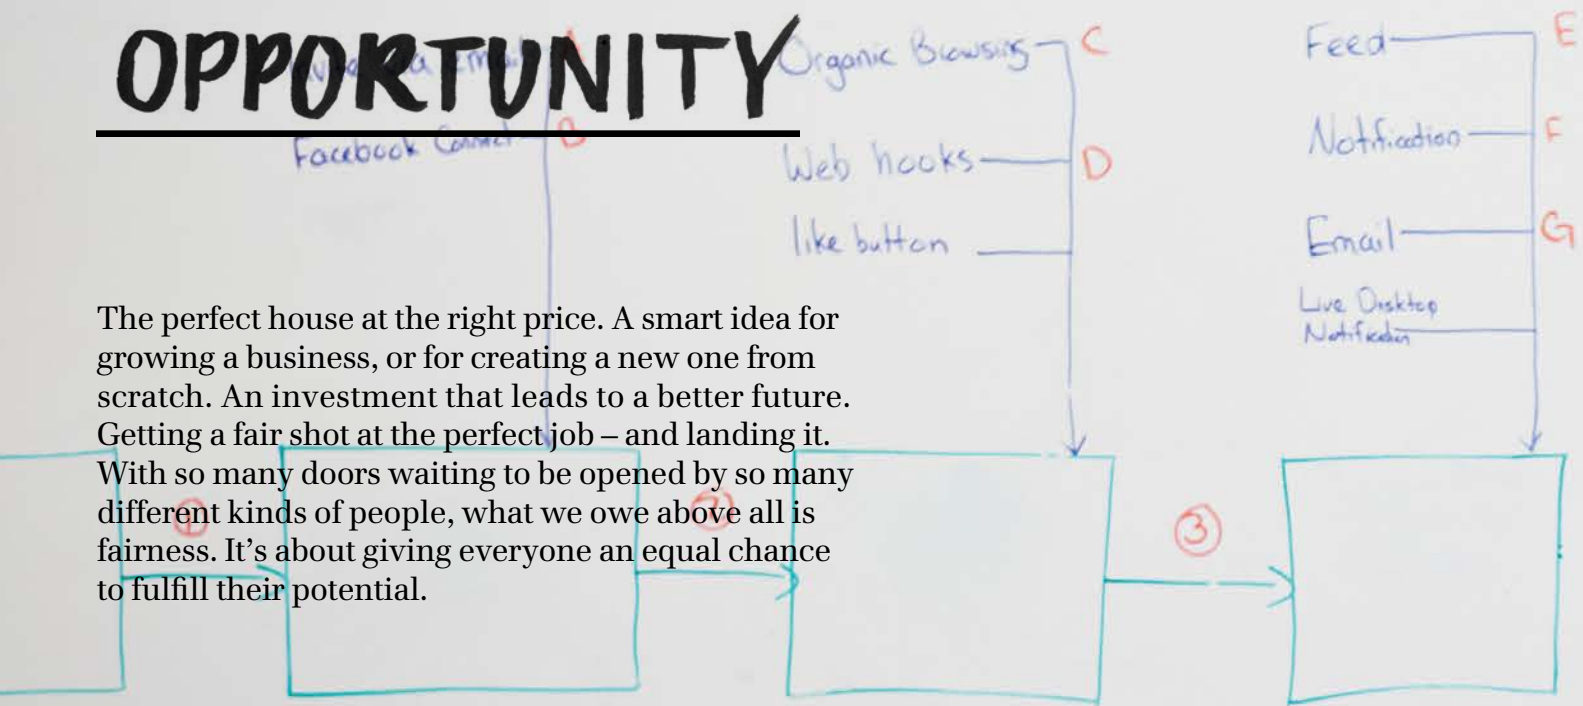 OPPORTUNITY
The perfect house at the right price. A smart idea for
growing a business, or for creating a new one from
scratch. An investment that leads to a better future.
Getting a fair shot at the perfect job – and landing it.
With so many doors waiting to be opened by so many
different kinds of people, what we owe above all is
fairness. It’s about giving everyone an equal chance
to fulfill their potential.
via email A
Facebook Connect B
Organic Browsing C
Web hooks D
like button
Feed E
Notification F
Email G
Live Desktop
Notification
1
2
3